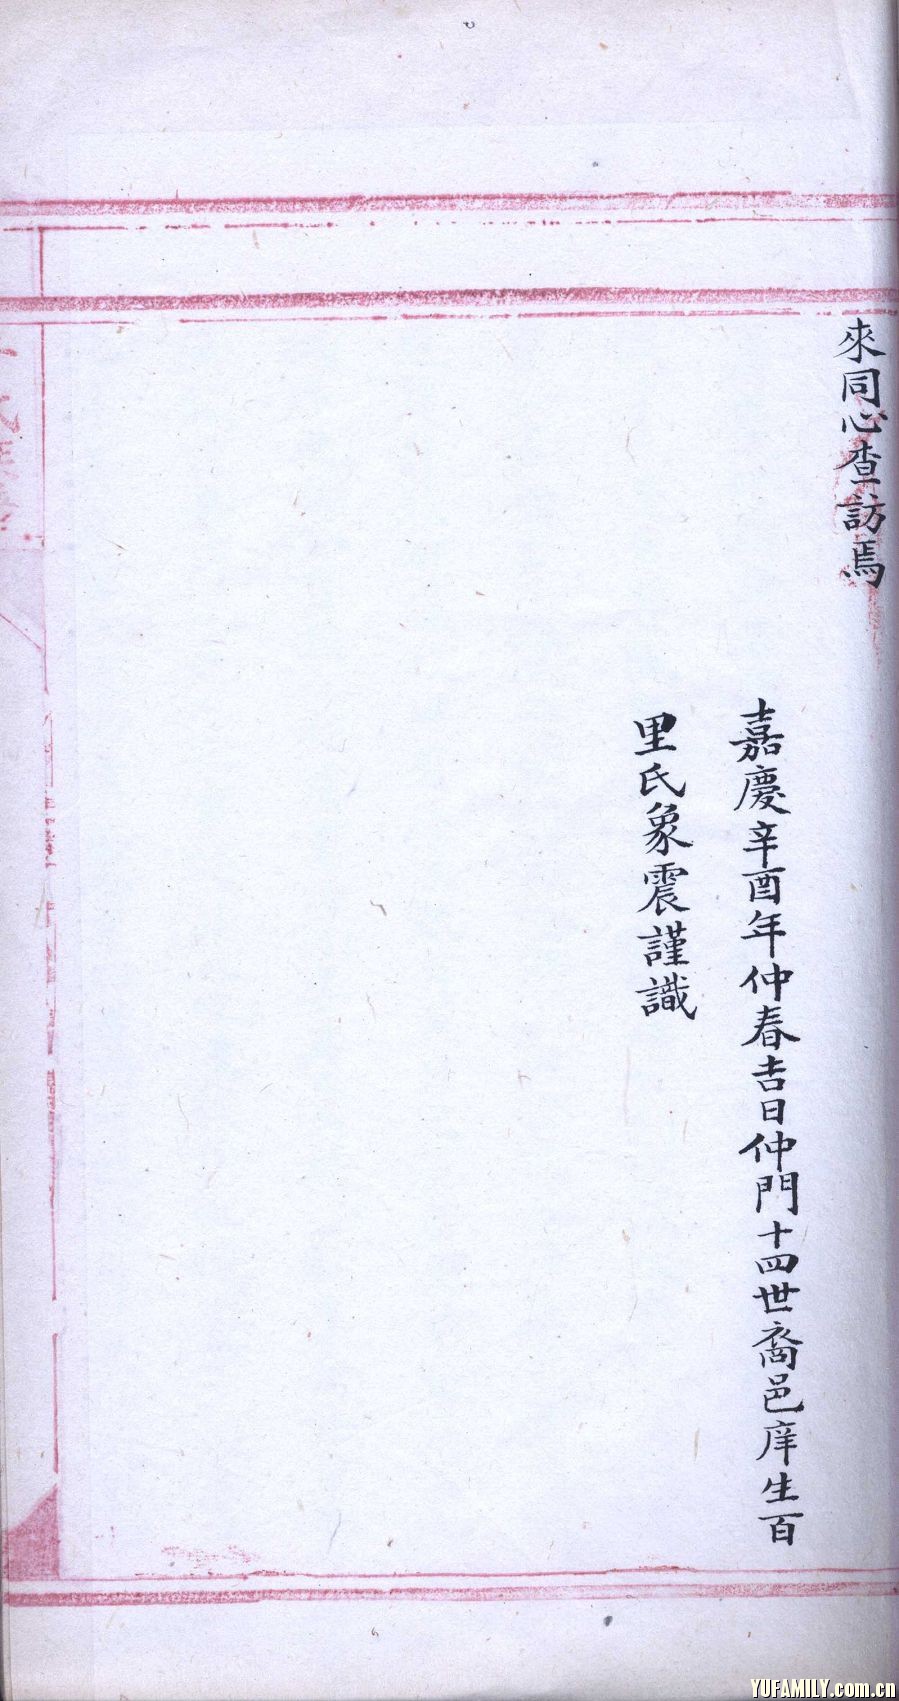 來同心查訪焉
嘉慶辛酉年仲春吉日仲門十四世裔邑庠生百
里氏象震謹識
YUFAMILY.com.cn